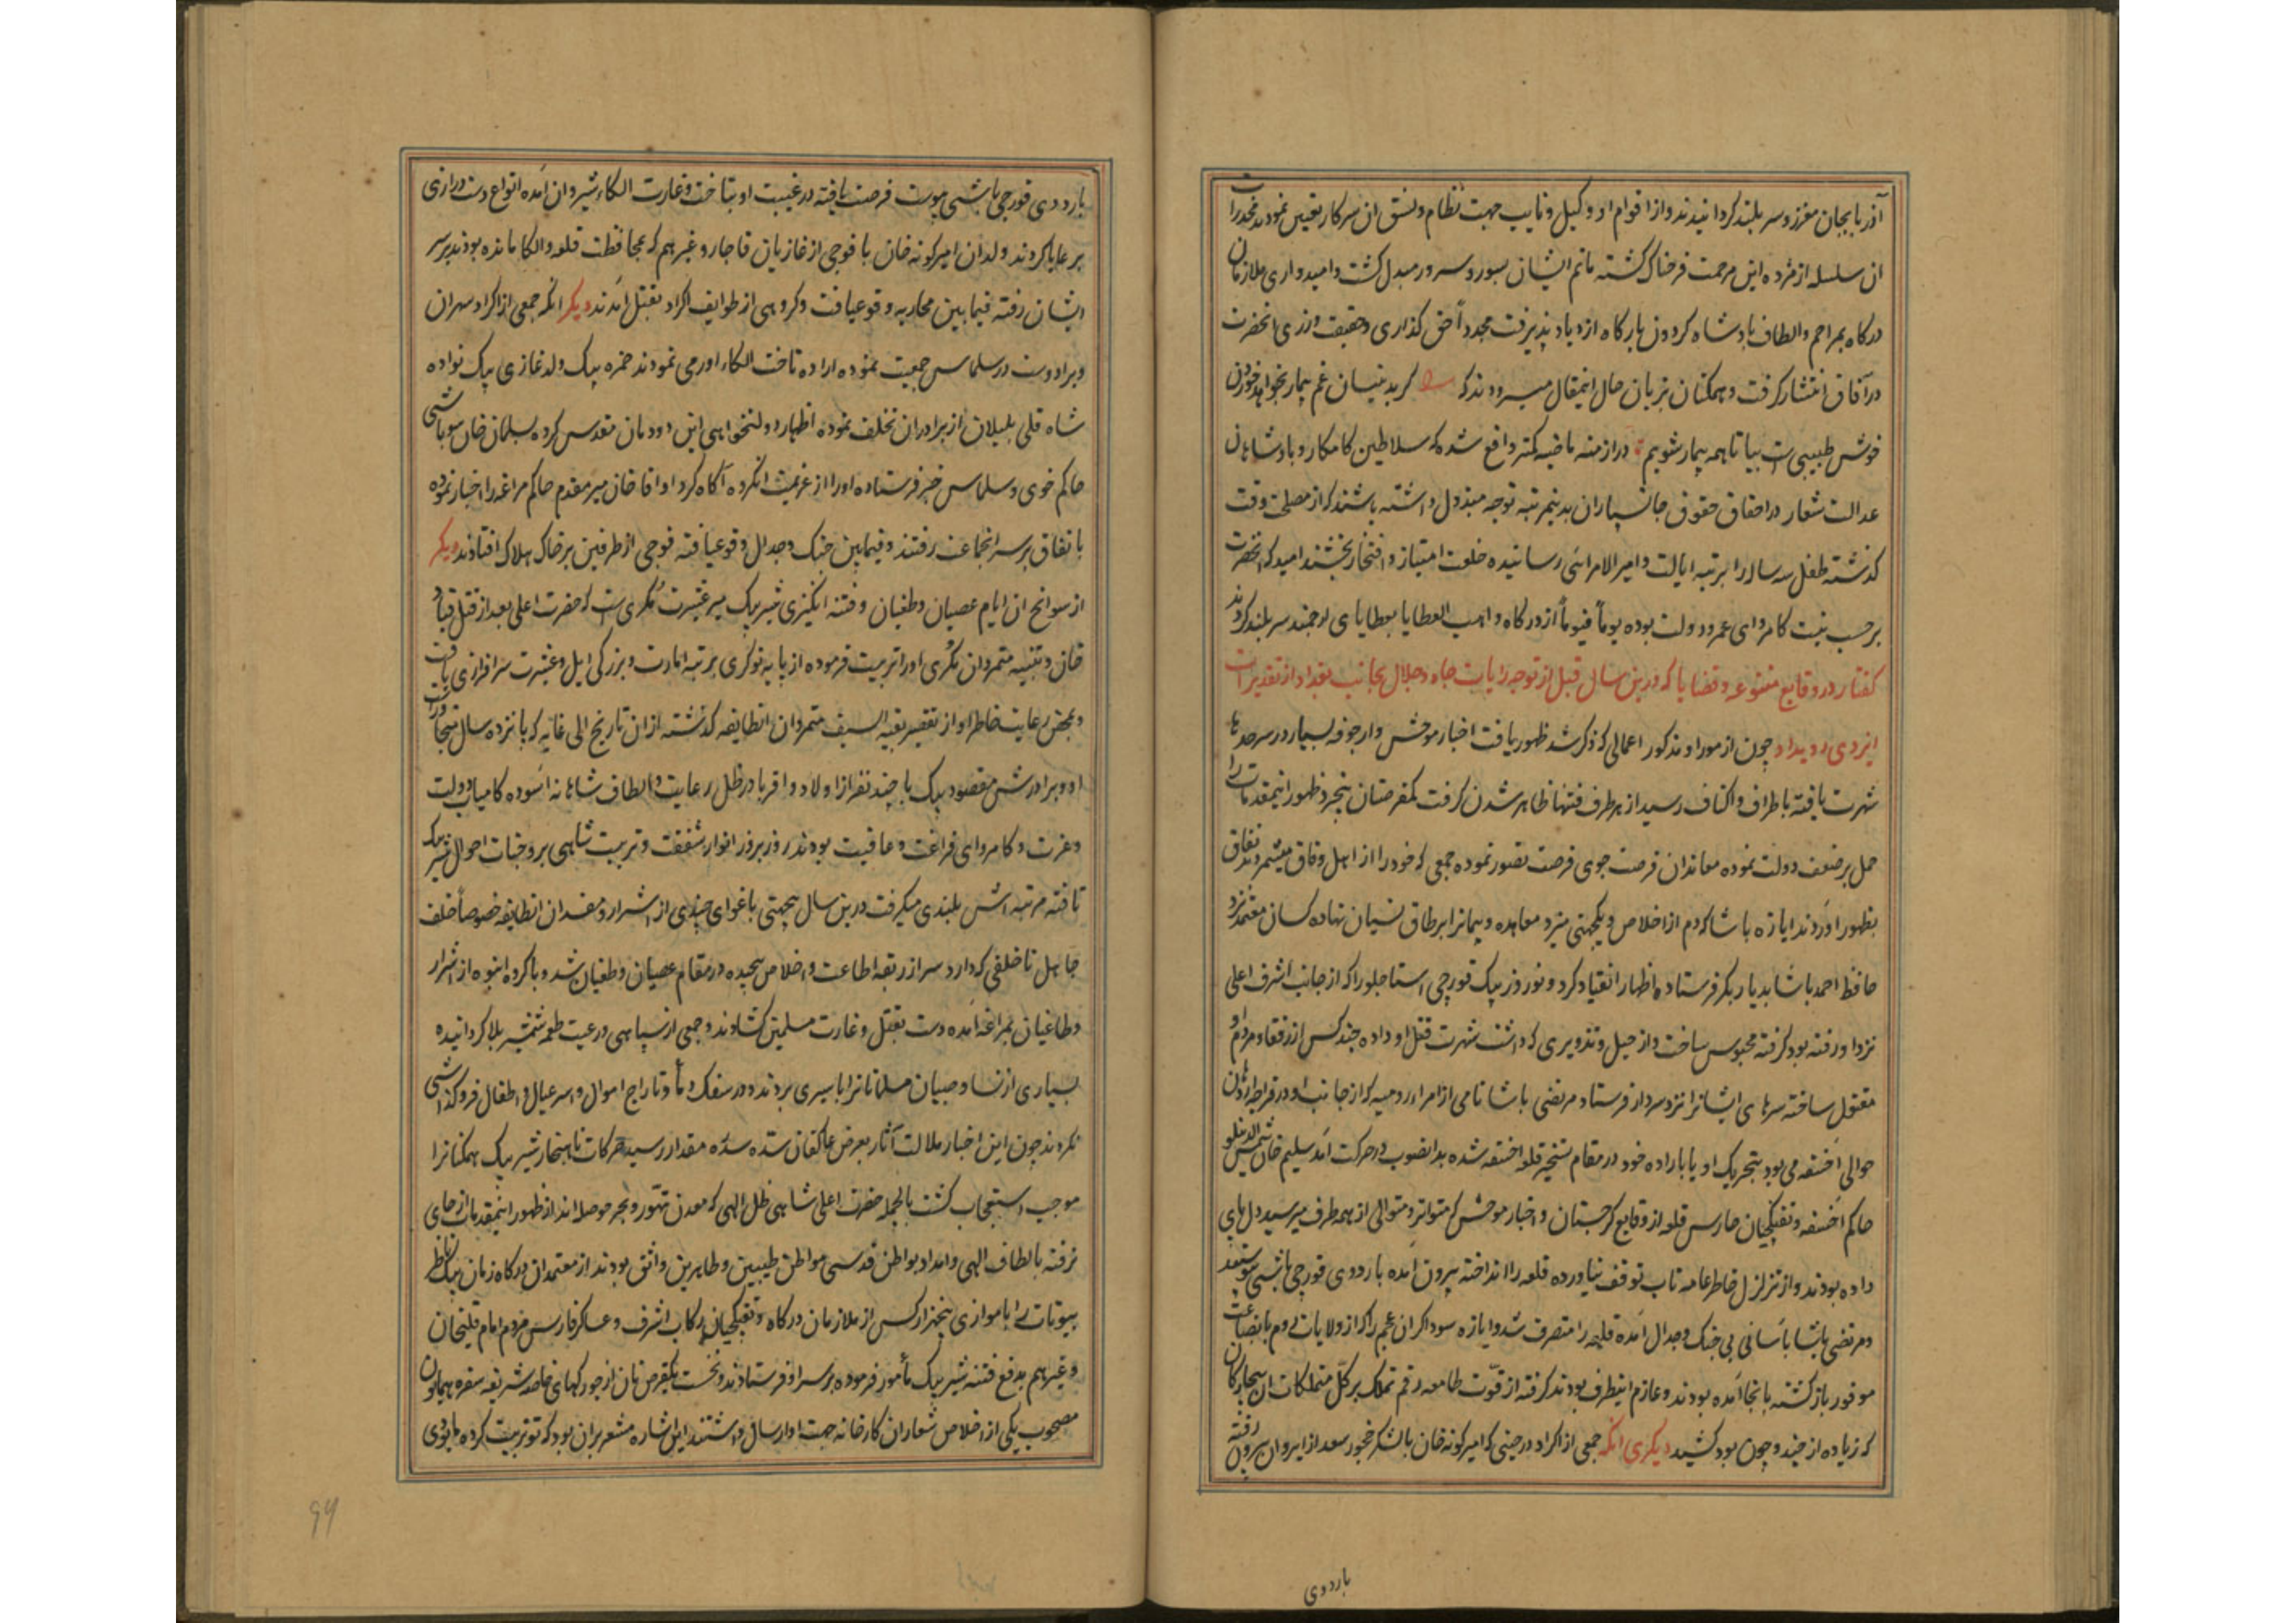 آذربایجان معزز و سربلند کردانیدند و از اقوام او وکیل و نایب جهت نظام و نسق ان سرکار تعیین نمودند مجددا
ان سلسله از مژده این مرحمت فرخناک کشته ماتم ایشان بسور و سرور مبدل کشت و امیدواری ملازمان
درکاه بمراحم و الطاف پادشاه کردون بارکاه ازدیاد پذیرفت مجدداً حق کذاری و حقیقت ورزی انحضرت
در آفاق انتشار کرفت و همکنان بزبان حال اینمقال میسرودند که کر بدینسان غم بیمار بخواهد خوردن
خوش طبیبی است بیا تا همه بیمار شویم در ازمنه ماضیه کمتر واقع شده که سلاطین کامکار و پادشاهان
عدالت شعار در احقاق حقوق جانسپاران بدینمرتبه توجه مبذول داشته باشند که از مصلحت وقت
کذشته طفل سه ساله را برتبه ایالت و امیرالامرائی رسانیده خلعت امتیاز و افتخار بخشند امید که انحضرت
برحسب نیت کامروای عمر و دولت بوده یوماً فیوماً از درکاه واهب العطایا بعطایای ارجمند سربلند کردند
کفتار در وقایع متنوعه و قضایا که درین سال قبل از توجه رایات جاه و جلال بجانب بغداد از تقدیرات
ایزدی رویداد چون از موراو مذکور اعمالی که ذکر شد ظهور یافت اخبار موحش و اراجوفه بسیار در سرحدها
شهرت یافته باطراف و اکناف رسید از هر طرف فتنها ظاهر شدن کرفت کمفرصتان بیخرد ظهور اینمقدمات را
حمل بر ضعف دولت نموده معاندان فرصت جوی فرصت تصور نموده جمعی که خود را از اهل وفاق میشمردند نفاق
بظهور اوردند ایازه پاشا که دم از اخلاص و یکجهتی میزد معاهده و پیمانرا برطاق نسیان نهاده کسان معتمد نزد
حافظ احمد پاشا بدیار بکر فرستاده اظهار انقیاد کرد و نوروز بیک قورچی استاجلو را که از جانب اشرف اعلی
نزد او رفته بود کرفته محبوس ساخت و از حیل و تزویری که داشت شهرت قتل او داده چند کس از رفقا و مردم او
مقتول ساخته سرهای ایشانرا نزد سردار فرستاد مرتضی پاشا نامی از امراء رومیه که از جانب او در قراحصار
حوالی اخسقه می بود بتحریک او یا باراده خود در مقام تسخیر قلعه اخسقه شده بدانصوب در حرکت آمد سلیم خان شمس الدینلو
حاکم اخسقه و تفنکچیان حارس قلعه از وقایع کرجستان و اخبار موحش که متواتر و متوالی از همه طرف میرسید دل بجای
داده بودند و از تزلزل خاطر عامه تاب توقف نیاورده قلعه را انداخته بیرون آمده باردوی قورچی باشی پیوستند
و مرتضی پاشا باسانی بی جنک و جدال آمده قلعه را متصرف شد و ایازه سوداکران عجم را که از ولایات روم با بضاعت
موفور بازکشته بانجا آمده بودند و عازم اینطرف بودند کرفته از قوت طامعه رقم تملک بر کل متملکات ان بیچارکان
که زیاده از چند و چون بود کشید دیکری انکه جمعی از اکراد در حینی که امیرکونه خان با لشکر خجور سعد از ایروان بیرون رفته
باردوی
باردوی قورچی باشی پیوست فرصت یافته در غیبت او بتاخت و غارت الکاء شیروان آمده انواع دست درازی
برعایا کردند ولدان امیرکونه خان با فوجی از غازیان قاجار و غیرهم که بمحافظت قلعه و الکا مانده بودند بر سر
ایشان رفته فیمابین محاربه وقوعیافت و کروهی از طوایف اکراد بقتل آمدند دیکر انکه جمعی از اکراد سهران
و برادوست در سلماس جمعیت نموده اراده تاخت الکاء اورمی نمودند حمزه بیک ولد غازی بیک نواده
شاه قلی بلیلان از برادران تخلف نموده اظهار دولتخواهی این دودمان مقدس کرده بسلمان خان سوباشی
حاکم خوی و سلماس خبر فرستاده او را از عزیمت انکروه آکاه کرد او اقا خان میر مقدم حاکم مراغه را اخبار نموده
باتفاق بر سر انجماعت رفتند و فیمابین جنک و جدال وقوعیافته فوجی از طرفین بر خاک هلاک افتادند دیکر
از سوانح ان ایام عصیان و طغیان و فتنه انکیزی شیر بیک میر عشیرت مکری است که حضرت اعلی بعد از قتل قباد
خان و تنبیه متمردان مکری او را تربیت فرموده از پایه نوکری برتبه امارت و بزرکی ایل و عشیرت سرافرازی یافت
و بمحض رعایت خاطر او از تقصیر بقیه السیف متمردان انطایفه کذشته از ان تاریخ الی غایه که پانزده سال متجاوز است
او و برادرش مقصود بیک با چند نفر از اولاد و اقربا در ظل رعایت و الطاف شاهانه آسوده کامیاب دولت
و عزت و کامروای فراغت و عاقبت بودند روز بروز انوار شفقت و تربیت شاهی بر وجنات احوال شیر بیک
تافته مرتبه اش بلندی میکرفت درین سال بیجهتی باغوای چندی از اشرار و مفسدان انطایفه خصوصاً خلف
جاهل ناخلفی که دارد سر از ربقه اطاعت و اخلاص پیچیده در مقام عصیان و طغیان شد و با کروه انبوه از اشرار
و طاغیان بمراغه آمده دست بقتل و غارت مسلمین کشادند و جمعی از سپاهی و رعیت طعمه شمشیر بلا کردانیده
بسیاری از نساء و صبیان مسلمانانرا باسیری بردند و در سفک دماء و تاراج اموال و اسر عیال و اطفال فروکذاشتی
نکردند چون این اخبار ملالت آثار بعرض عاکفان سده سدره مقدار رسید حرکات ناهنجار شیر بیک همکنانرا
موجب استعجاب کشت بالجمله حضرت اعلی شاهی ظل الهی که معدن تهور و بحر حوصله اند از ظهور اینمقدمات از جای
نرفته بالطاف الهی و امداد بواطن قدسی مواطن طیبین و طاهرین واثق بودند از معتمدان درکاه زمان بیک ناظر
بیوتات را با موازی پنجهزار کس از ملازمان درکاه و تفنکچیان رکاب اشرف و عساکر فارس مردم امام قلیخان
و غیرهم بدفع فتنه شیر بیک مأمور فرموده بر سر او فرستادند و نخست یکقرص نان از جورکهای خاصه شریفه سفره همایون
مصحوب یکی از اخلاص شعاران کارخانه جهت او ارسال داشتند این اشاره مشعر بران بود که تو تربیت کرده
۹۹